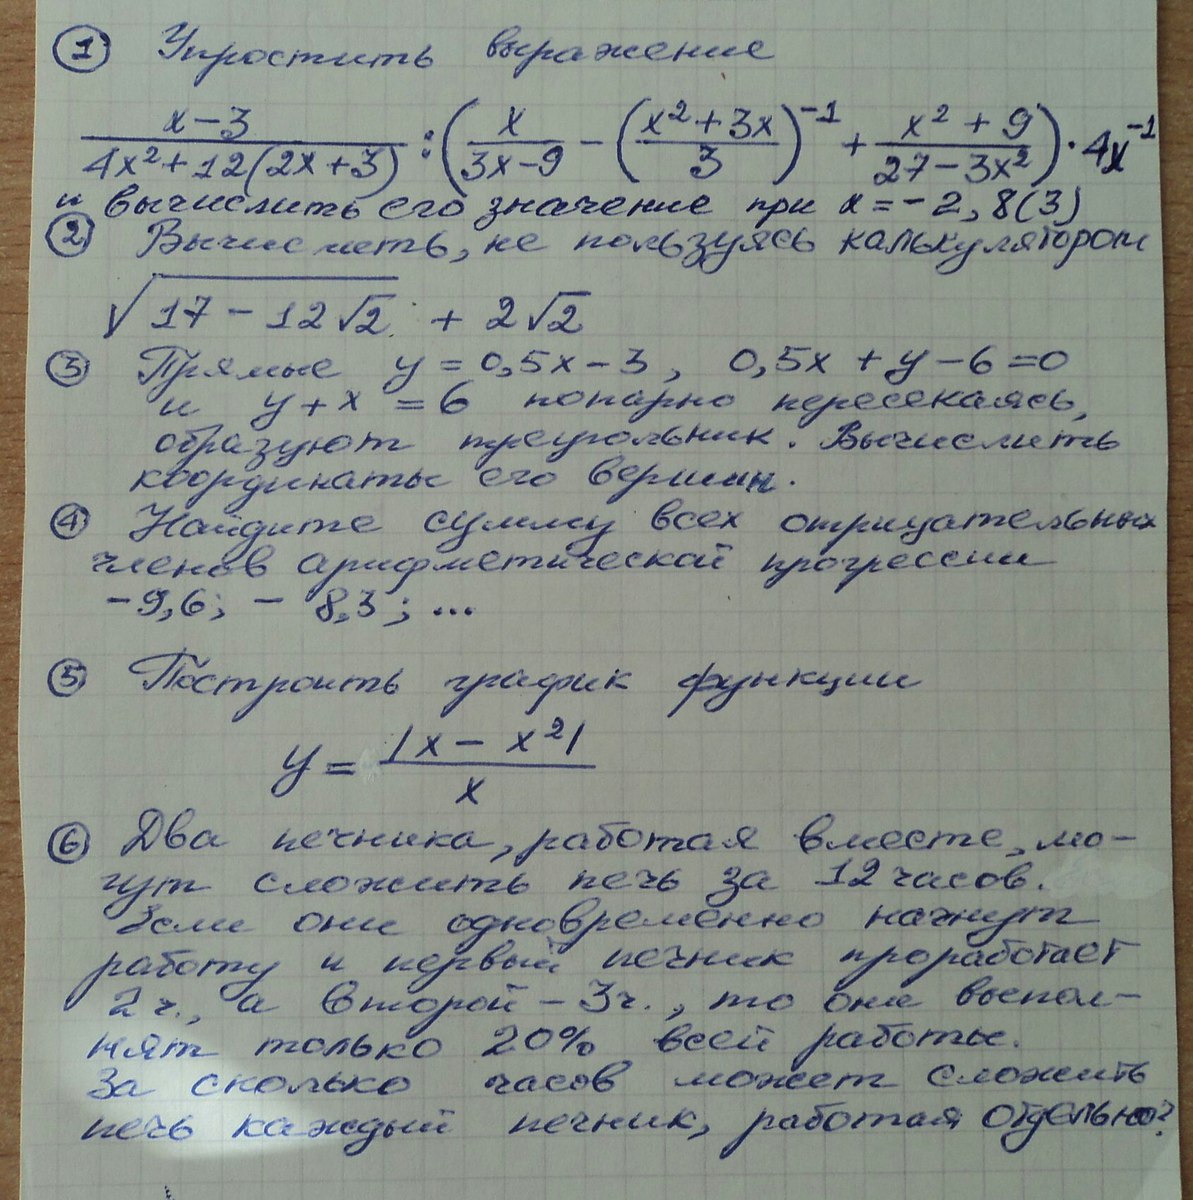 ① Упростить выражение
(x-3)/(4x²+12(2x+3)) : (x/(3x-9) - ((x²+3x)/3)⁻¹ + (x²+9)/(27-3x²)) · 4x⁻¹
и вычислить его значение при x=-2,8(3)
② Вычислить, не пользуясь калькулятором
√(17-12√2) + 2√2
③ Прямые y=0,5x-3, 0,5x+y-6=0
и y+x=6 попарно пересекаясь,
образуют треугольник. Вычислить
координаты его вершин.
④ Найдите сумму всех отрицательных
членов арифметической прогрессии
-9,6; -8,3; ...
⑤ Построить график функции
y = |x-x²|/x
⑥ Два печника, работая вместе, мо-
гут сложить печь за 12 часов.
Если они одновременно начнут
работу и первый печник проработает
2ч., а второй - 3ч., то они выпол-
нят только 20% всей работы.
За сколько часов может сложить
печь каждый печник, работая отдельно?